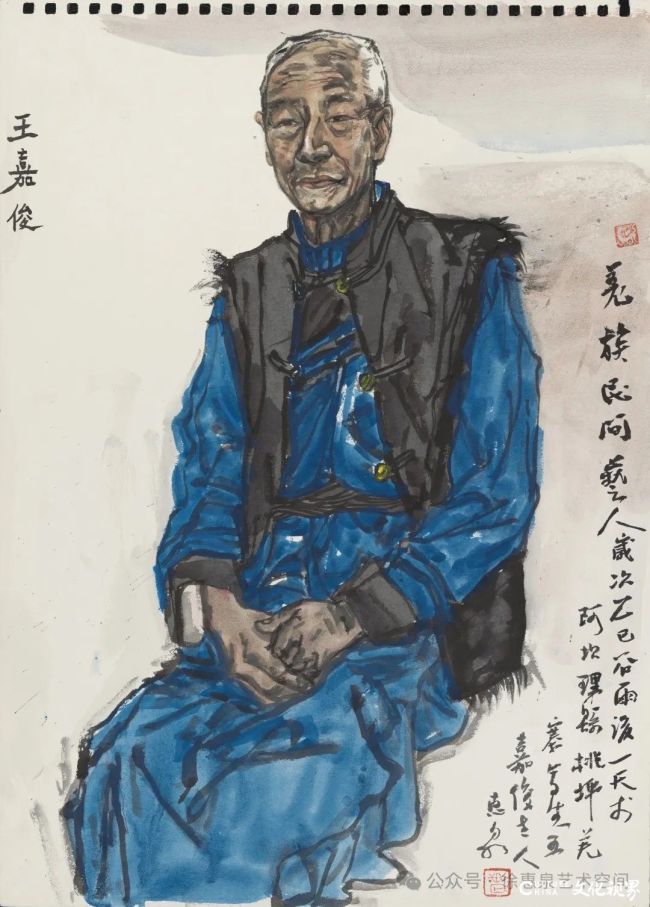 王嘉俊
羌族民间藝人歲次乙巳谷雨後一天於
阿坝理縣桃坪羌
寨写生王
嘉俊老人
惠泉
公众号·徐惠泉艺术空间
CHINA 文化视界